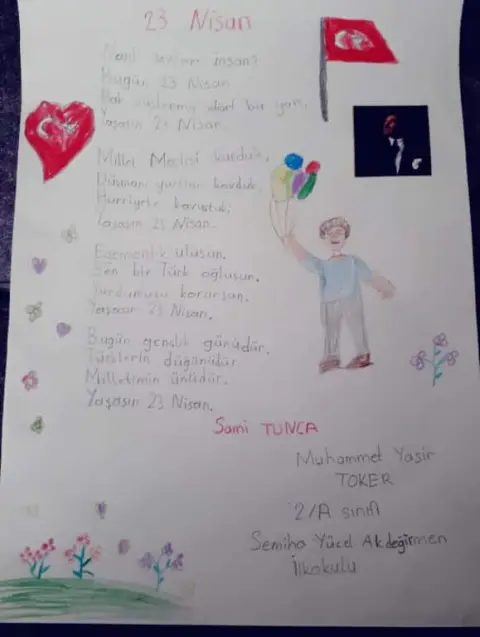 23 Nisan
Nasıl sevinmez insan?
Bugün 23 Nisan
Bak süslenmiş dört bir yan,
Yaşasın 23 Nisan.
Millet Meclisi kurduk,
Düşmanı yurttan kovduk,
Hürriyete kavuştuk;
Yaşasın 23 Nisan.
Egemenlik ulusun.
Sen bir Türk oğlusun.
Yurdumuzu korursun.
Yaşasın 23 Nisan.
Bugün genclik günüdür.
Türklerin düğünüdür.
Milletimin ünüdür.
Yaşasın 23 Nisan.
Sami TUNCA
Muhammet Yasir
TOKER
2/A sınıfı
Semiha Yücel Akdeğirmen
İlkokulu